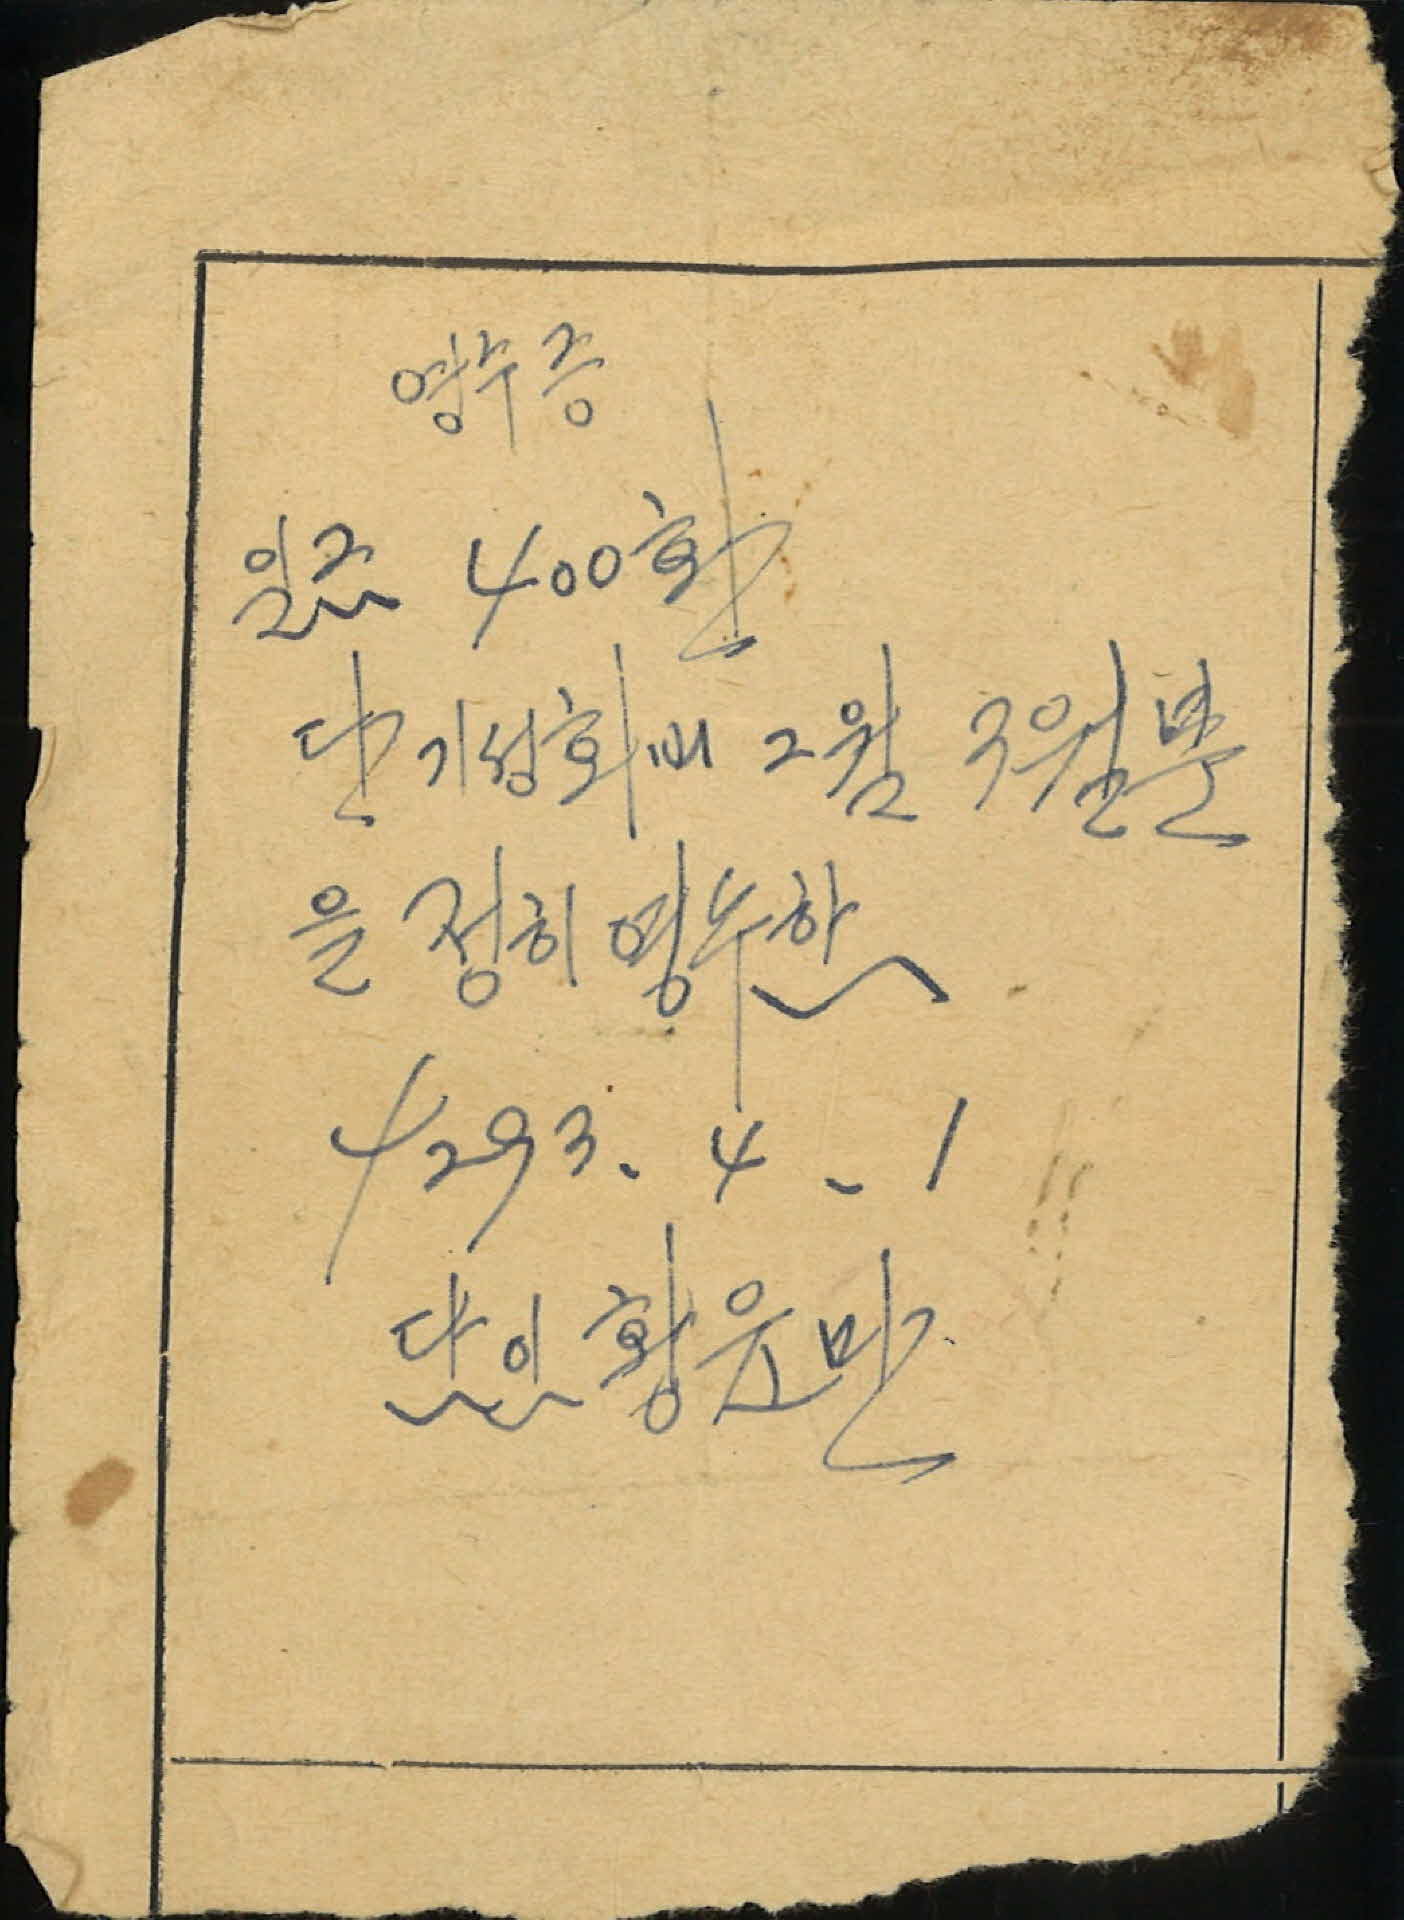 영수증
일금 400환
단 기성회비 2월 3월분
을 정히 영수함
4293. 4. 1
담임 황윤만